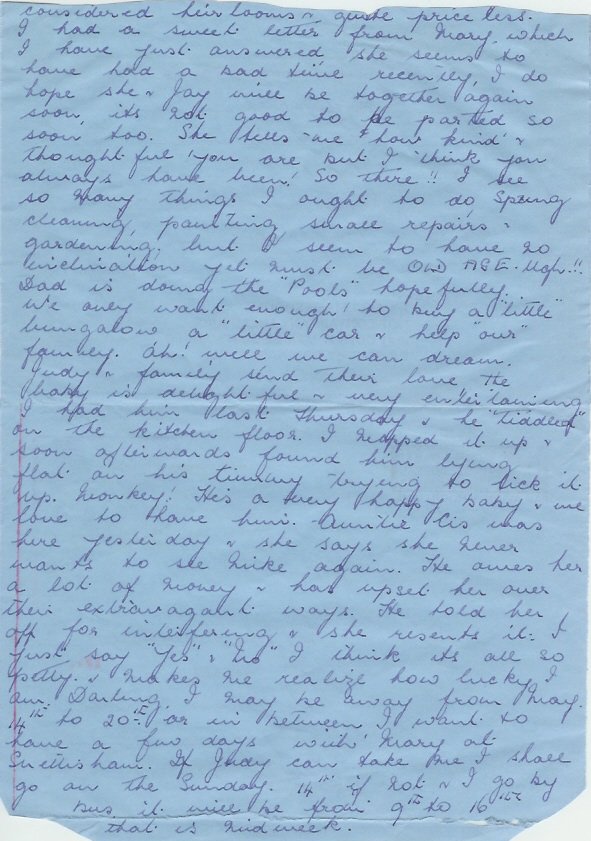 considered heirlooms & quite priceless.
I had a sweet letter from Mary, which
I have just answered, she seems to
have had a bad time recently, I do
hope she & Jay will be together again
soon, its not good to be parted so
soon too. She tells me "how kind" &
thoughtful you are but I think you
always have been! So there!! I see
so many things I ought to do, Spring
cleaning, painting, small repairs &
gardening, but I seem to have no
inclination yet must be OLD AGE. Ugh!!
Dad is doing the "Pools" hopefully.
We only want enough to buy a "little"
bungalow a "little" car & help "our"
family. Ah! well we can dream.
Judy & family send their love the
baby is delightful & very entertaining
I had him last Thursday & he "tiddled"
on the kitchen floor. I mopped it up &
soon afterwards found him lying
flat on his tummy trying to lick it
up. Monkey! He's a very happy baby & we
love to have him. Auntie Cis was
here yesterday & she says she never
wants to see Mike again. He owes her
a lot of money & has upset her over
their extravagant ways. He told her
off for interfering & she resents it. I
just say "Yes" & "No" I think its all so
petty. & makes me realize how lucky I
am. Darling, I may be away from May.
14th to 20th or in between I want to
have a few days with Mary at
Snettisham. If Judy can take me I shall
go on the Sunday. 14th if not & I go by
bus it will be from 9th to 16th
that is midweek.